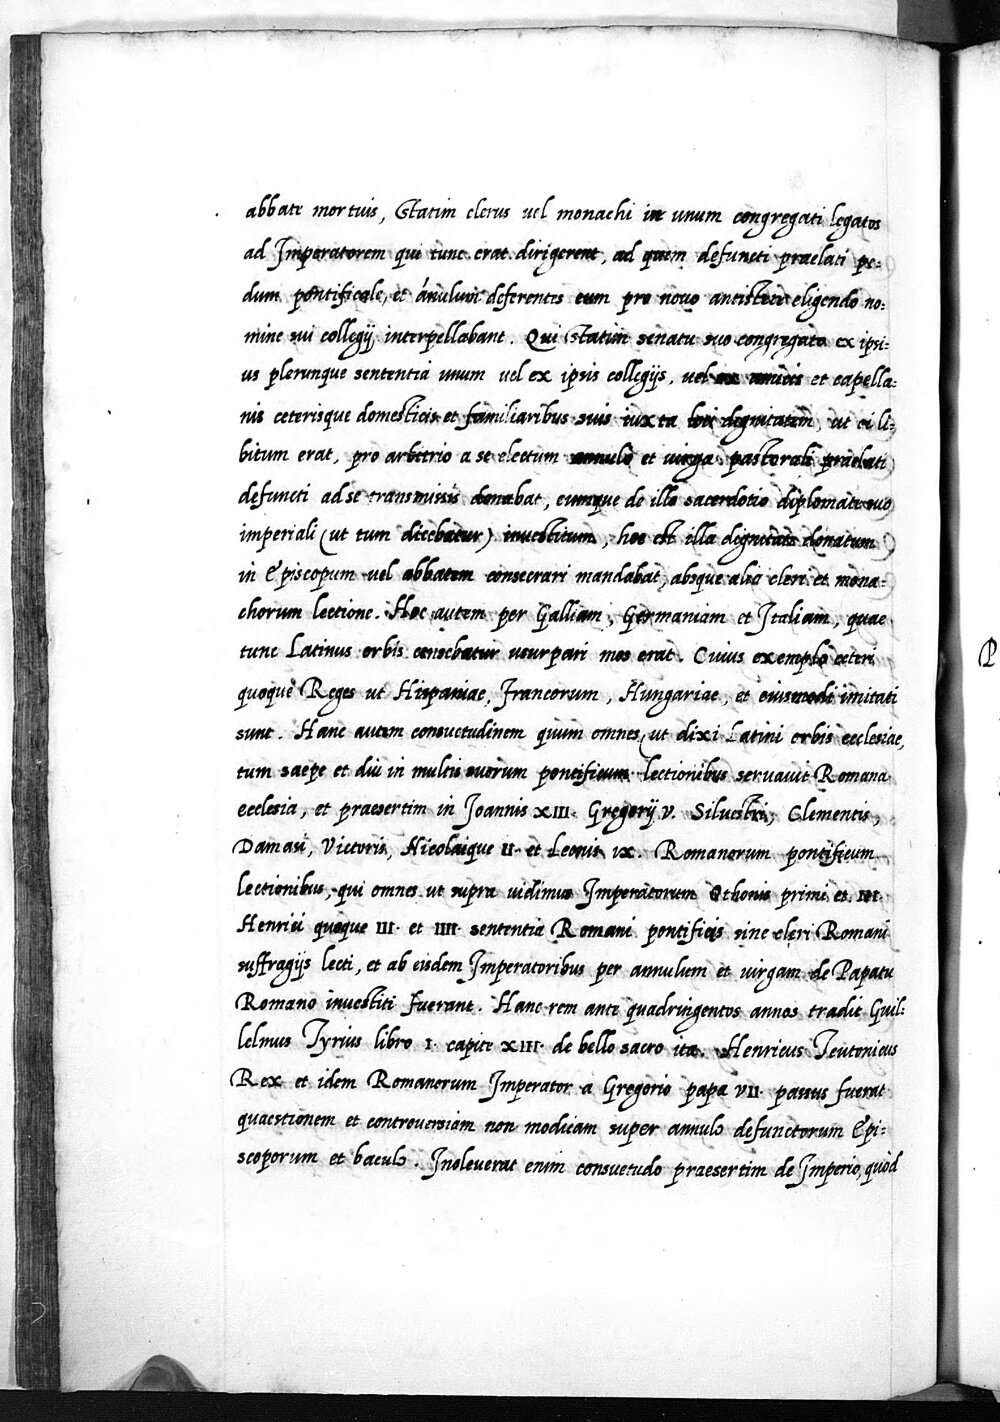 abbate mortuis, Statim clerus vel monachi in unum congregati legatos
ad Imperatorem qui tunc erat dirigerent, ad quem defuncti praelati pe:
dum pontificale, et ánulum deferentes eum pro novo antistete eligendo no:
mine sui collegij interpellabant. Qui Statim senatu suo congregato ex ipsi:
us plerunque sententia unum vel ex ipsis collegijs, vel ex amicis et capella:
nis ceterisque domesticis et familiaribus suis iuxta loci dignitatem, ut ei li:
bitum erat, pro arbitrio a se electum annulo et virga pastorali praelati
defuncti ad se transmissis donabat, eumque de illo sacerdotio diplomate suo
imperiali (ut tum dicebatur) investitum, hoc est illa dignitate donatum
in Episcopum vel abbatem consecrari mandabat, absque alia cleri et mona:
chorum lectione. Hoc autem per Galliam, Germaniam et Italiam, quae
tunc Latinus orbis censebatur usurpari mos erat. Cuius exemplo ceteri
quoque Reges ut Hispaniae, Francorum, Hungariae, et eiusmodi imitati
sunt. Hanc autem consuetudinem quum omnes (ut dixi Latini orbis ecclesiae,
tum saepe et diu in multis suorum pontificum lectionibus servavit Romana
ecclesia, et praesertim in Joannis XIII. Gregorij V. Silvestri, Clementis,
Damasi, Victoris, Nicolaique II. et Leonis IX. Romanorum pontificum
lectionibus, qui omnes ut supra vidimus Imperatorum Othonis primi et III.
Henrici quoque III. et IIII. sententia Romani pontificis sine cleri Romani
suffragijs lecti, et ab eisdem Imperatoribus per annulum et virgam de Papatu
Romano investiti fuerant. Hanc rem ante quadringentos annos tradit Guil:
lelmus Tyrius libro I. capite XIII. de bello sacro ita. Henricus Teutonicus
Rex et idem Romanorum Imperator a Gregorio papa VII. passus fuerat
quaestionem et controversiam non modicam super annulo defunctorum Epi:
scoporum et baculo. Inoleverat enim consuetudo praesertim de Imperio, quòd
P